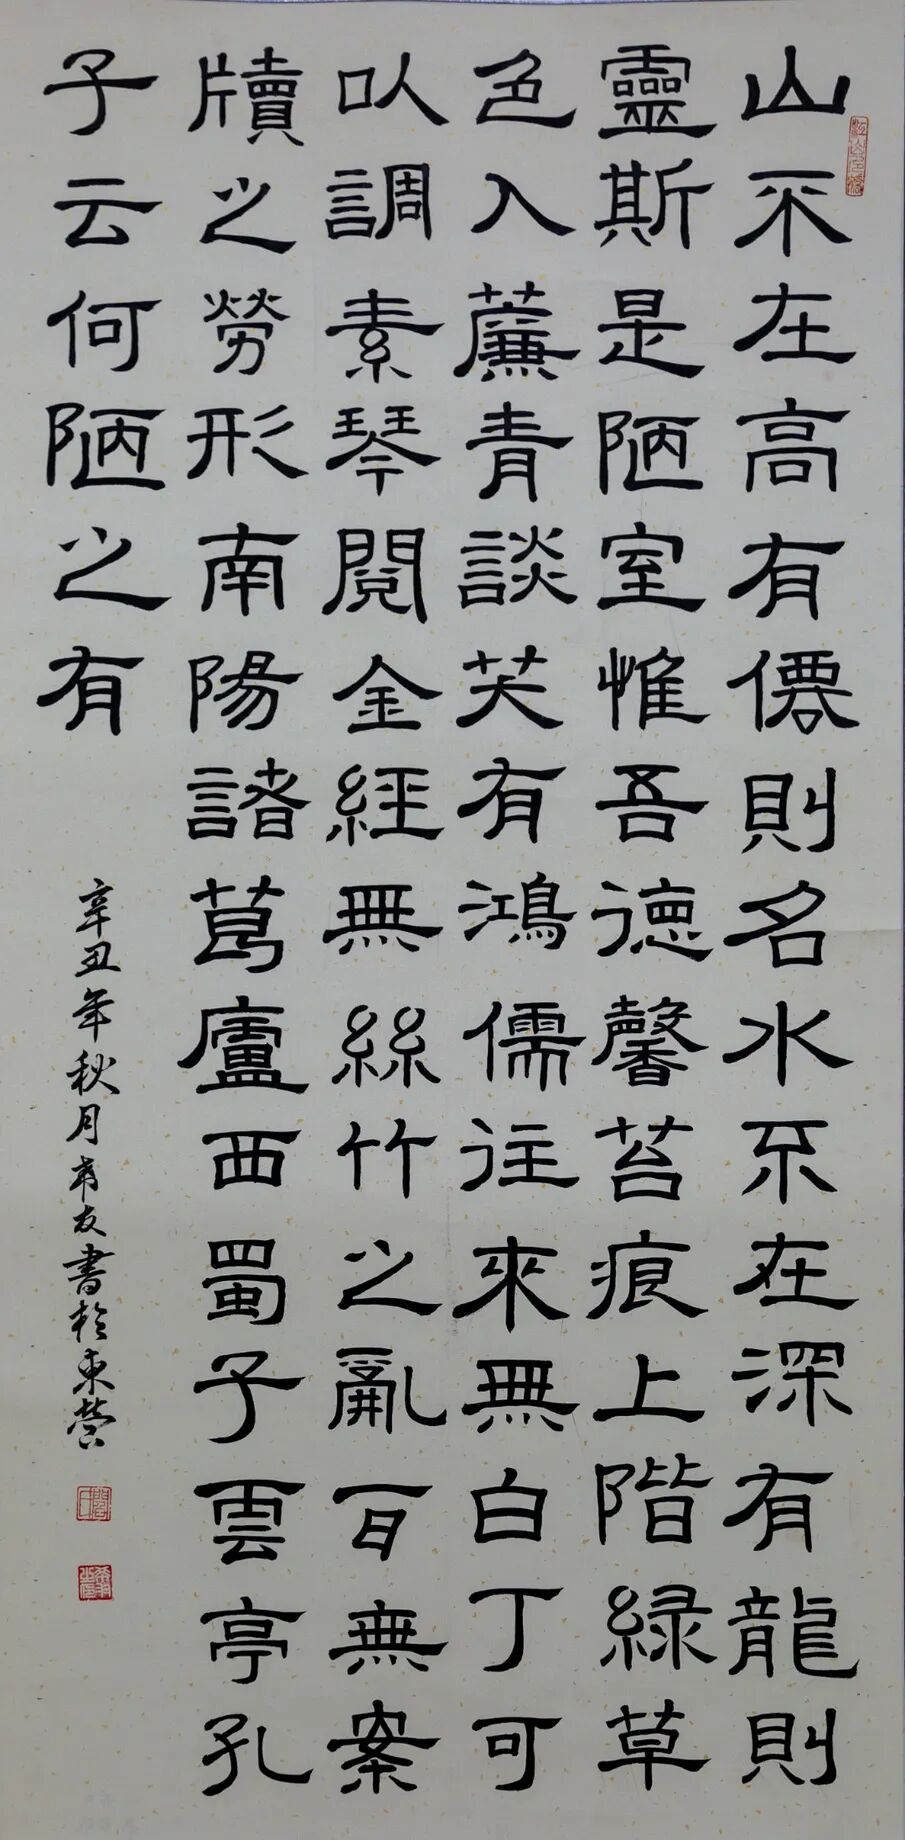 山不在高有僊則名水不在深有龍則
靈斯是陋室惟吾德馨苔痕上階緑草
色入薕青談笑有鴻儒往來無白丁可
以調素琴閱金經無絲竹之亂百無案
牘之勞形南陽諸葛廬西蜀子雲亭孔
子云何陋之有
辛丑年秋月希友書於東營